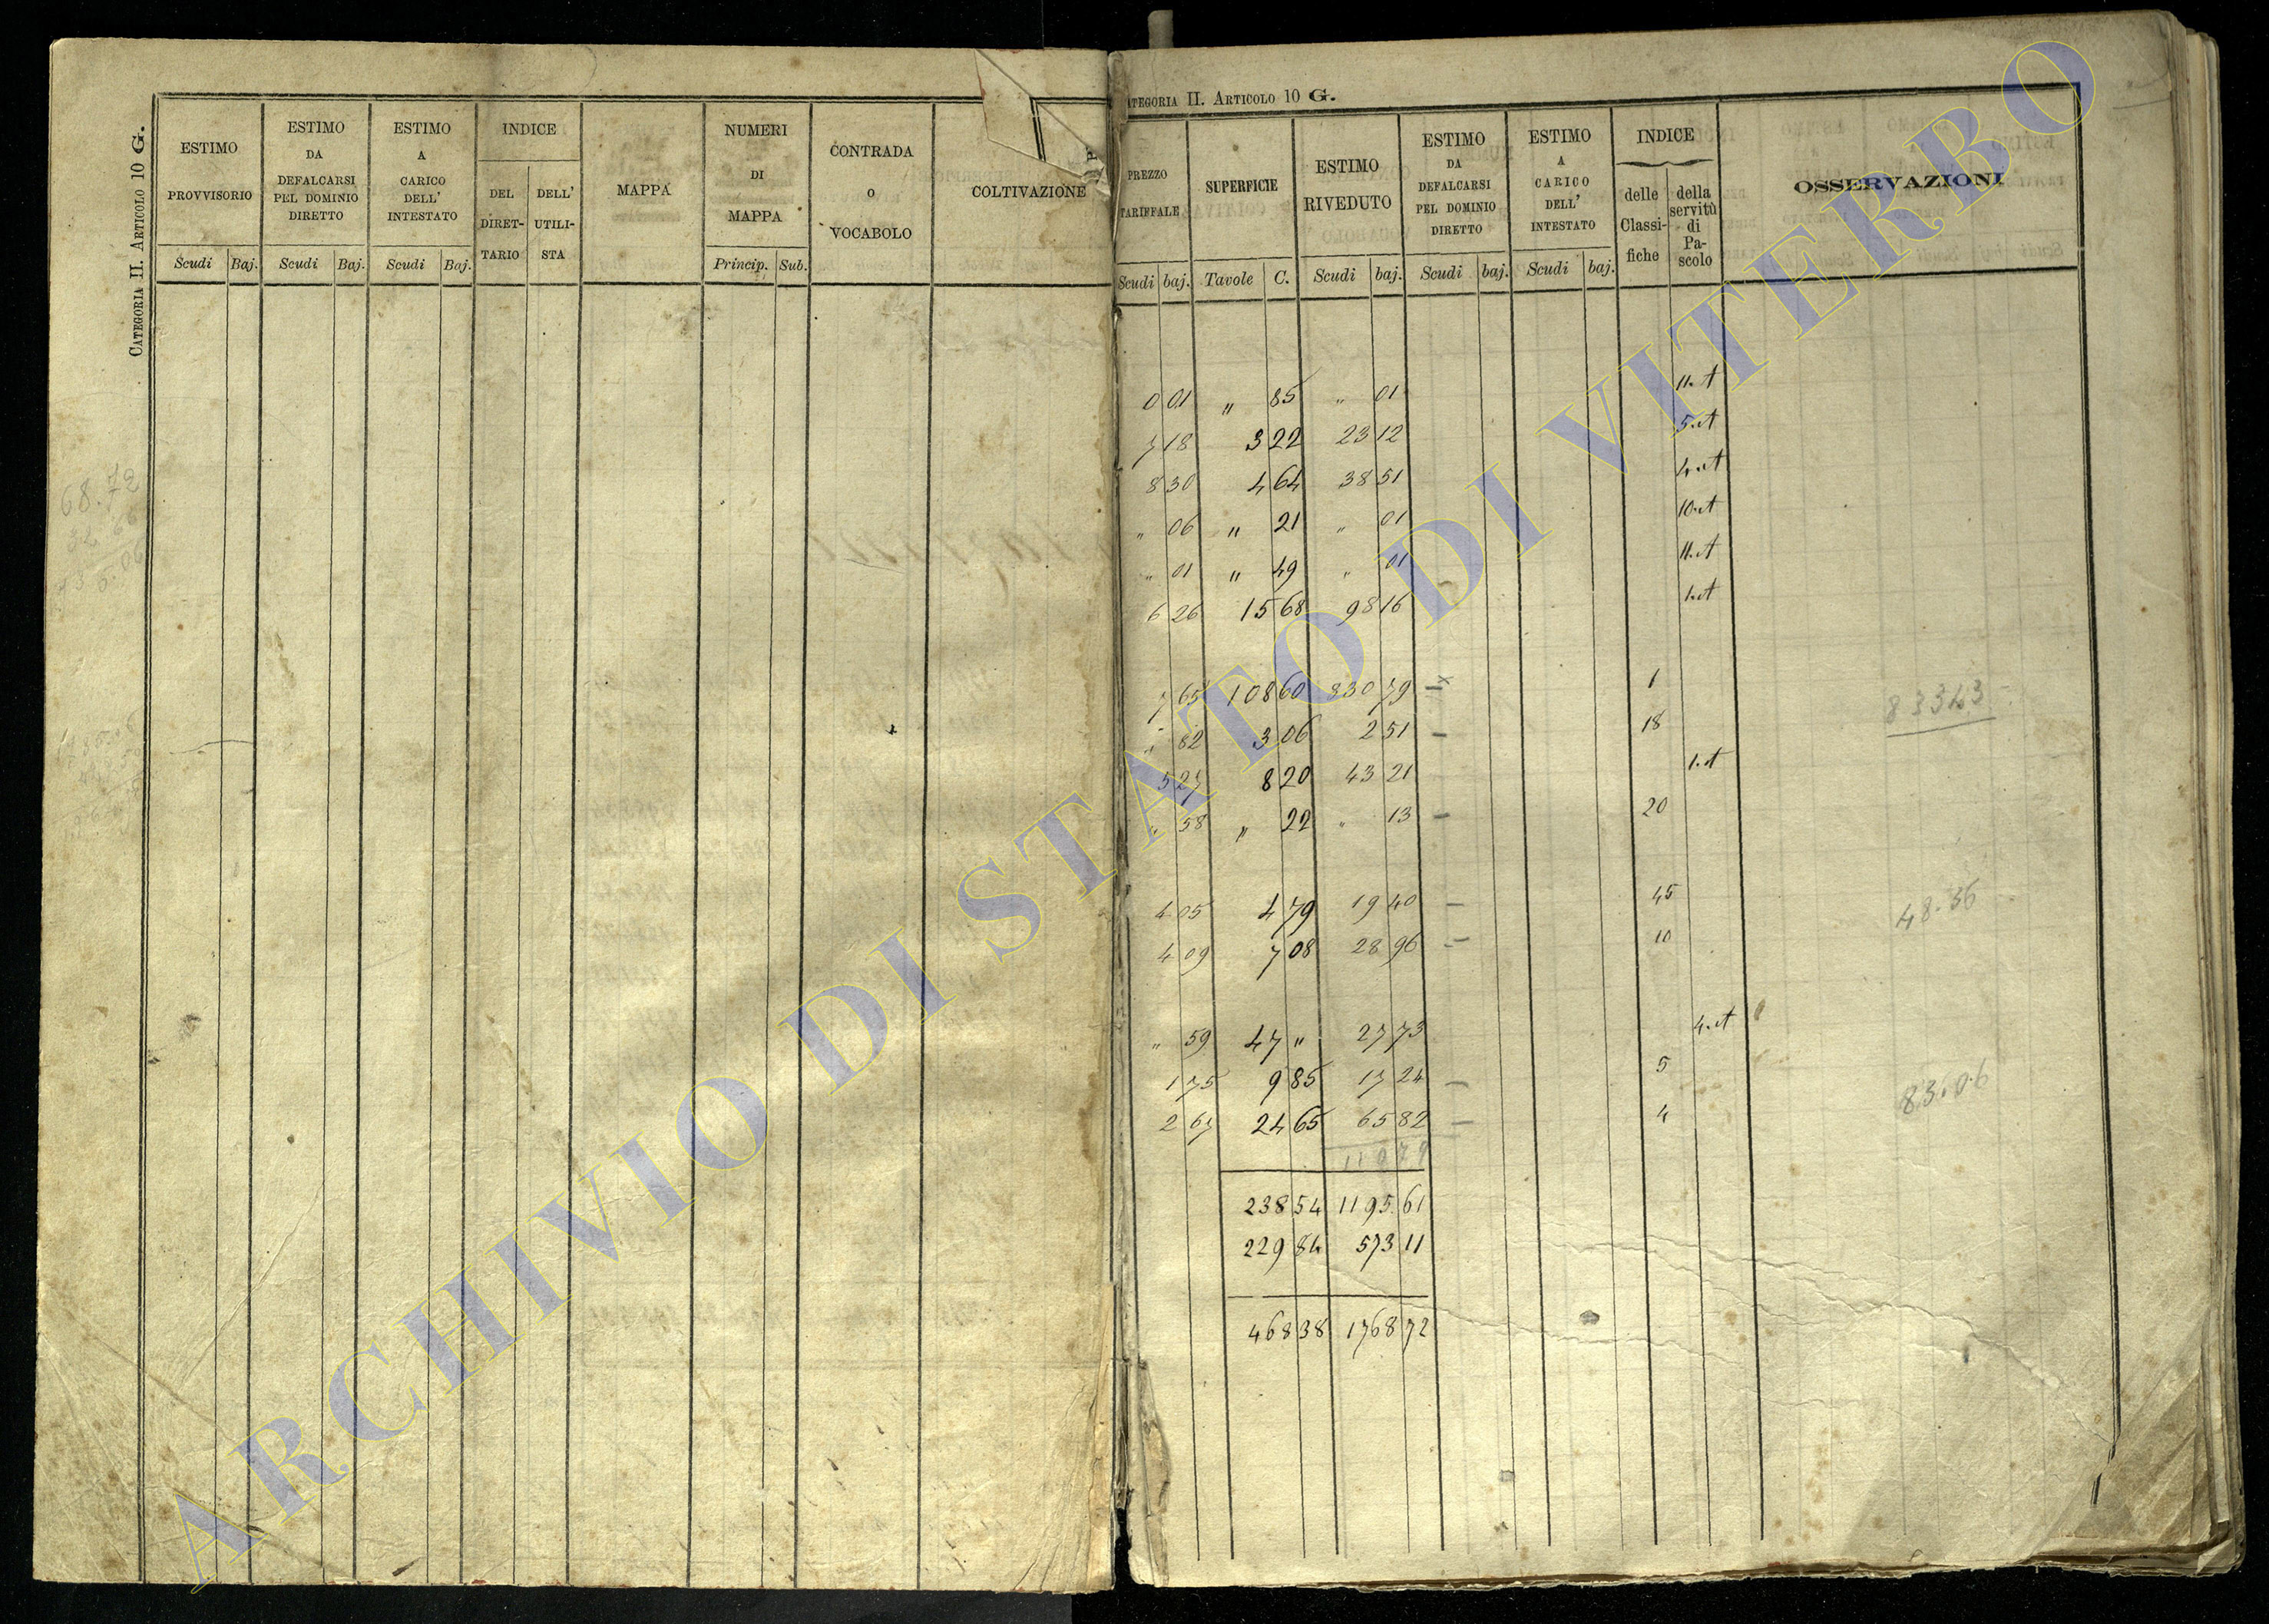 CATEGORIA II. ARTICOLO 10 G.
ESTIMO PROVVISORIO
ESTIMO DA DEFALCARSI PEL DOMINIO DIRETTO
ESTIMO A CARICO DELL' INTESTATO
INDICE
DEL DIRET-TARIO
DELL' UTILI-STA
MAPPA
NUMERI DI MAPPA
CONTRADA O VOCABOLO
COLTIVAZIONE
Scudi Baj. Scudi Baj. Scudi Baj. Princip. Sub.
68.72
ATEGORIA II. ARTICOLO 10 G.
PREZZO TARIFFALE
SUPERFICIE
ESTIMO RIVEDUTO
ESTIMO DA DEFALCARSI PEL DOMINIO DIRETTO
ESTIMO A CARICO DELL' INTESTATO
INDICE
delle Classi-fiche
della servitù di Pa-scolo
OSSERVAZIONI
Scudi baj. Tavole C. Scudi baj. Scudi baj. Scudi baj.
0 01 " 85 " 01 11.A
7 18 3 22 23 12 5.A
8 30 4 64 38 51 4.A
" 06 " 21 " 01 10.A
" 01 " 49 " 01 11.A
6 26 15 68 98 16 1.A
7 65 108 60 830 79 – 1
" 82 3 06 2 51 – 18 83343
5 27 8 20 43 21 1.A
" 58 " 22 " 13 – 20
4 05 4 79 19 40 – 45
4 09 7 08 28 96 – 10 48.36
" 59 47 " 27 73 4.A
1 75 9 85 17 24 – 5
2 67 24 65 65 82 – 4 83.06
238 54 1195.61
229 84 573 11
468 38 1768 72
ARCHIVIO DI STATO DI VITERBO